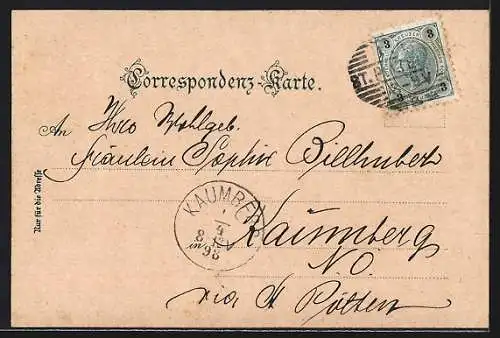 3 KREUZER 3
3 3
ST. P
Correspondenz-Karte.
An Ihro Wohlgeb.
Fräulein Sophie Billhuber
Nur für die Adresse
KAUMBERG
1/4
98
Kaumberg
N.Ö.
via St Pölten